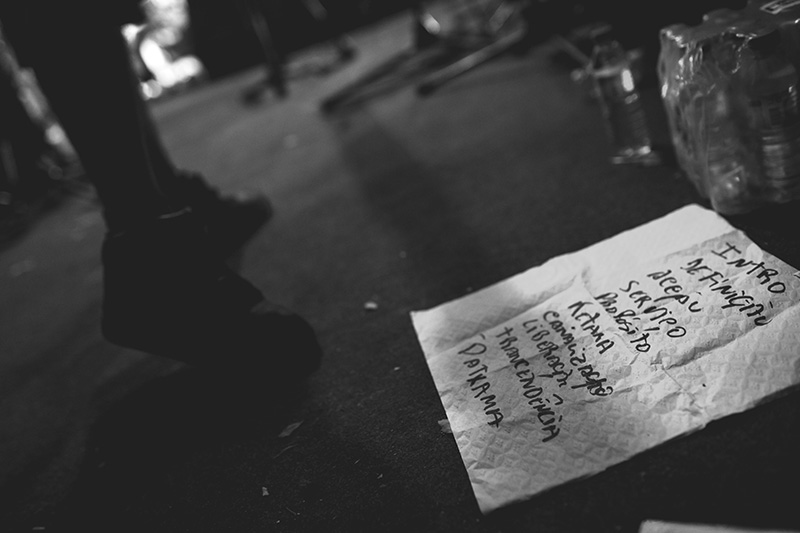 INTRO
DEFINIÇÃO
SERVIPO
PROPÓSITO
KETAMA
CANALIZAÇÃO
LIBERAÇÃO
TRANCENDÊNCIA
DATKAMA